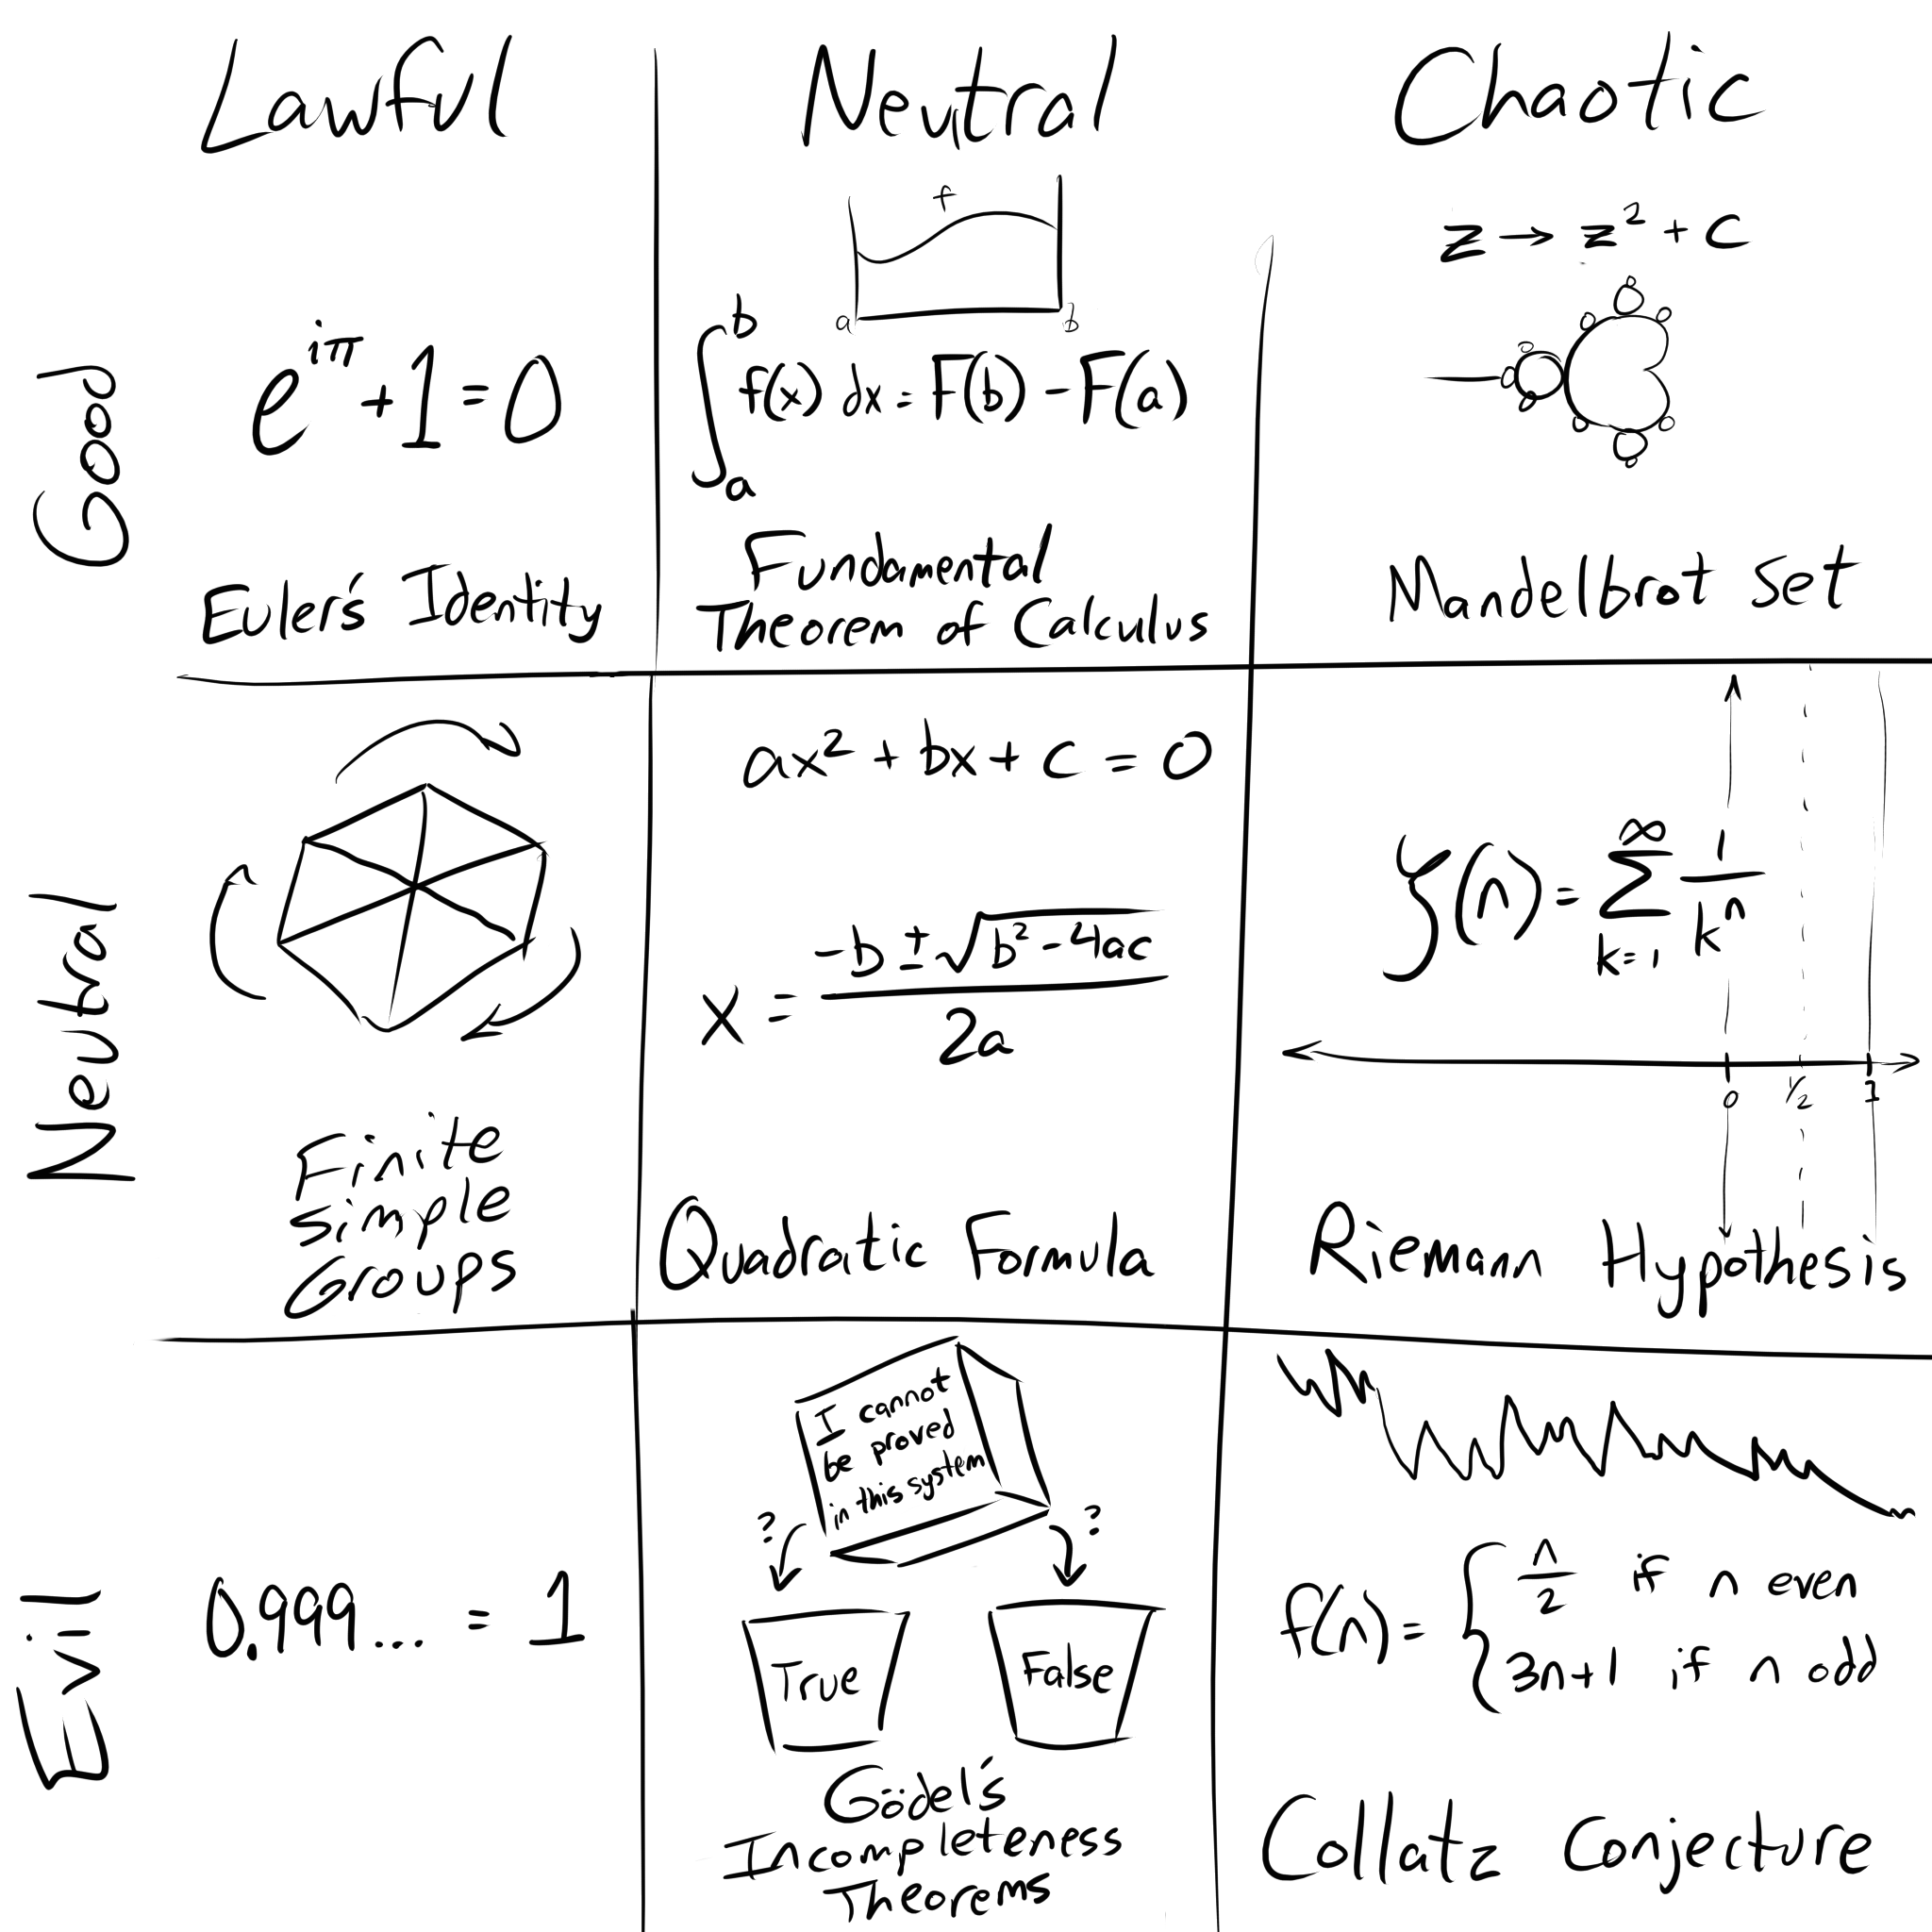 Lawful Neutral Chaotic
Good
e^{iπ} + 1 = 0
Euler's Identity
f
a b
∫_a^b f(x) dx = F(b) - F(a)
Fundamental
Theorem of Calculus
z → z² + c
Mandelbrot Set
Neutral
Finite
Simple
Groups
ax² + bx + c = 0
x = (-b ± √(b² - 4ac)) / 2a
Quadratic Formula
ζ(n) = ∑_{k=1}^∞ 1/k^n
0 1/2 1
Riemann Hypothesis
Evil
0.999... = 1
I cannot
be proved
in this system
? ?
True False
Gödel's
Incompleteness
Theorems
f(n) = { n/2 if n even
3n+1 if n odd
Collatz Conjecture